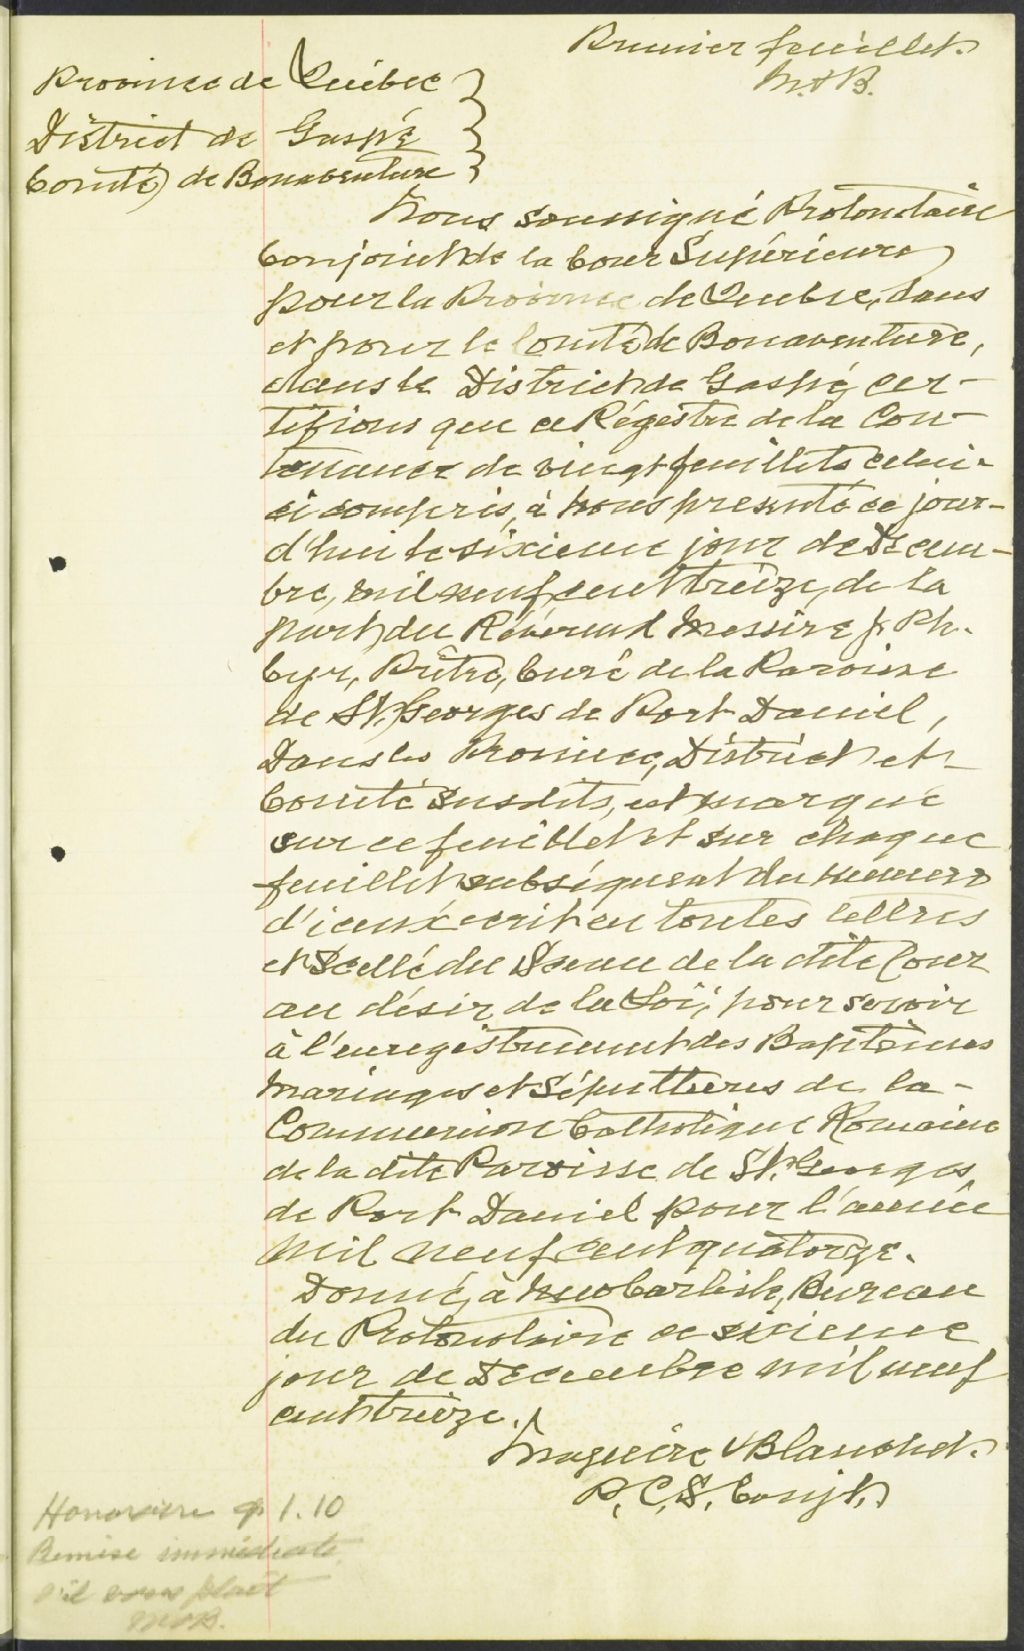 Premier feuillet.
M. & B.
Province de Québec
District de Gaspé
Comté de Bonaventure
Nous soussigné Protonotaire
Conjoint de la Cour Supérieure
pour la Province de Quebec, dans
et pour le Comté de Bonaventure,
dans le District de Gaspé, cer-
tifions que ce Régistre de la Con-
tenance de vingt feuillets celui-
ci compris, à nous presenté ce jour-
d'hui le sixieme jour de Decem-
bre, mil neuf cent treize, de la
part du Révérend Messire J. Ph.
Cyr, Prêtre, Curé de la Paroisse
de St. Georges de Port Daniel,
Dans les Province, District et
Comté susdits, est marqué
sur ce feuillet et sur chaque
feuillet subséquent du numero
d'iceux ecrit en toutes lettres
et Scellé du Sceau de la dite Cour
au désir de la Loi, pour servir
à l'enregistrement des Baptêmes
Mariages et Sépultures de la
Communion Catholique Romaine
de la dite Paroisse de St. Georges
de Port Daniel pour l'année
mil neuf cent quatorze.
Donné, à New Carlisle, Bureau
du Protonotaire ce sixieme
jour de Decembre mil neuf
cent treize.
Maguire & Blanchet.
P. C. S. Conjt.
Honoraire $1.10
Remise immédiate
s'il vous plait
M&B.